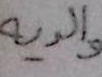 والديه